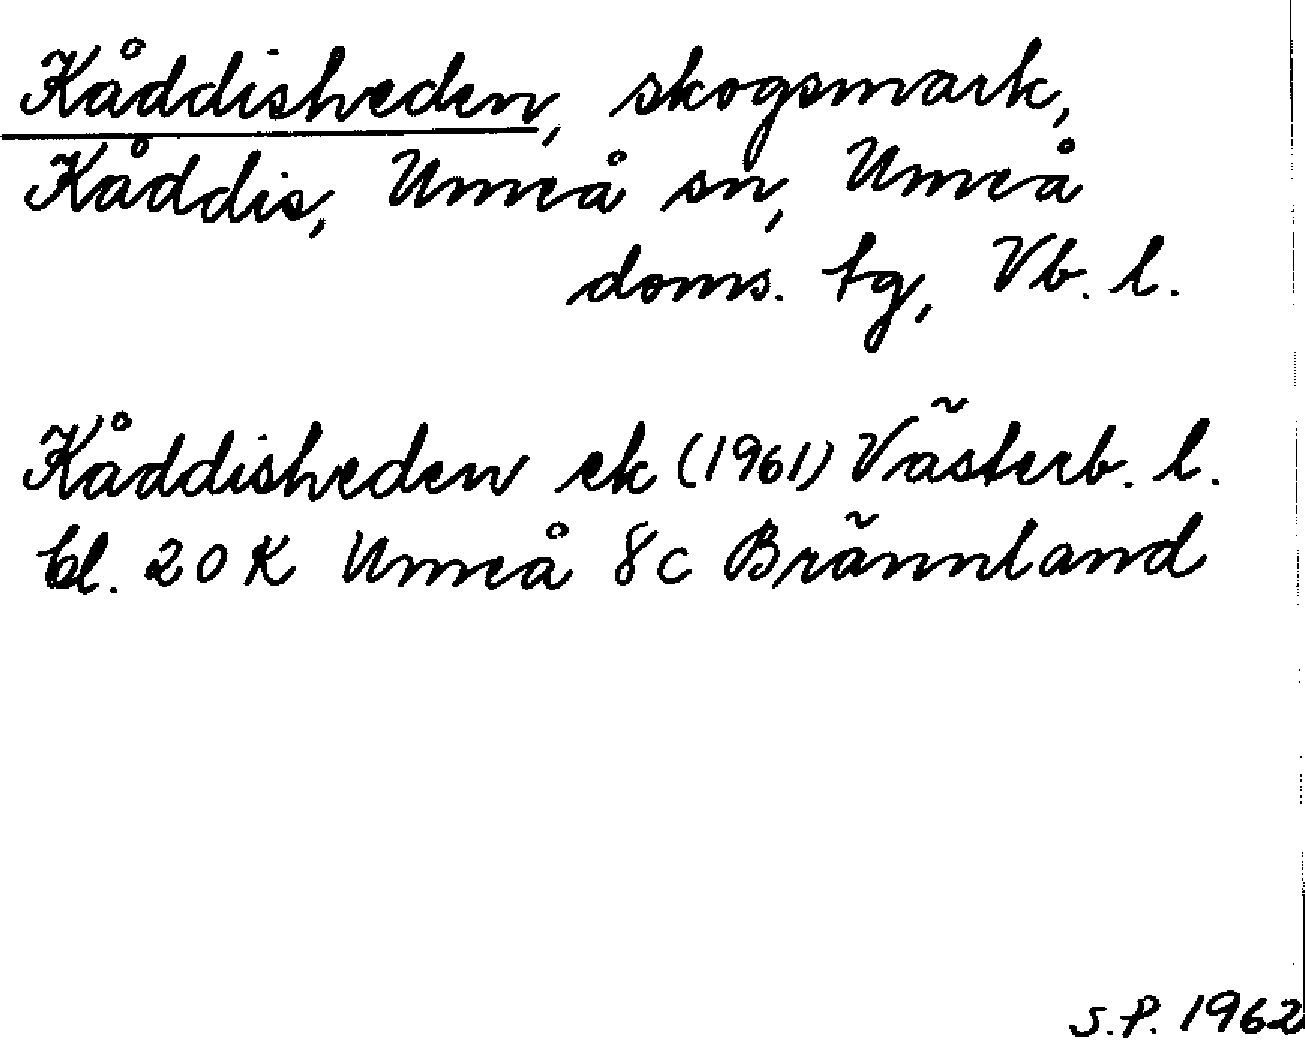 Kåddisheden, skogsmark,
Kåddis, Umeå sn, Umeå
doms. tg, Vb. l.
Kåddisheden ek (1961) Västerb. l.
bl. 20 K Umeå 8c Brännland
S.P. 1962